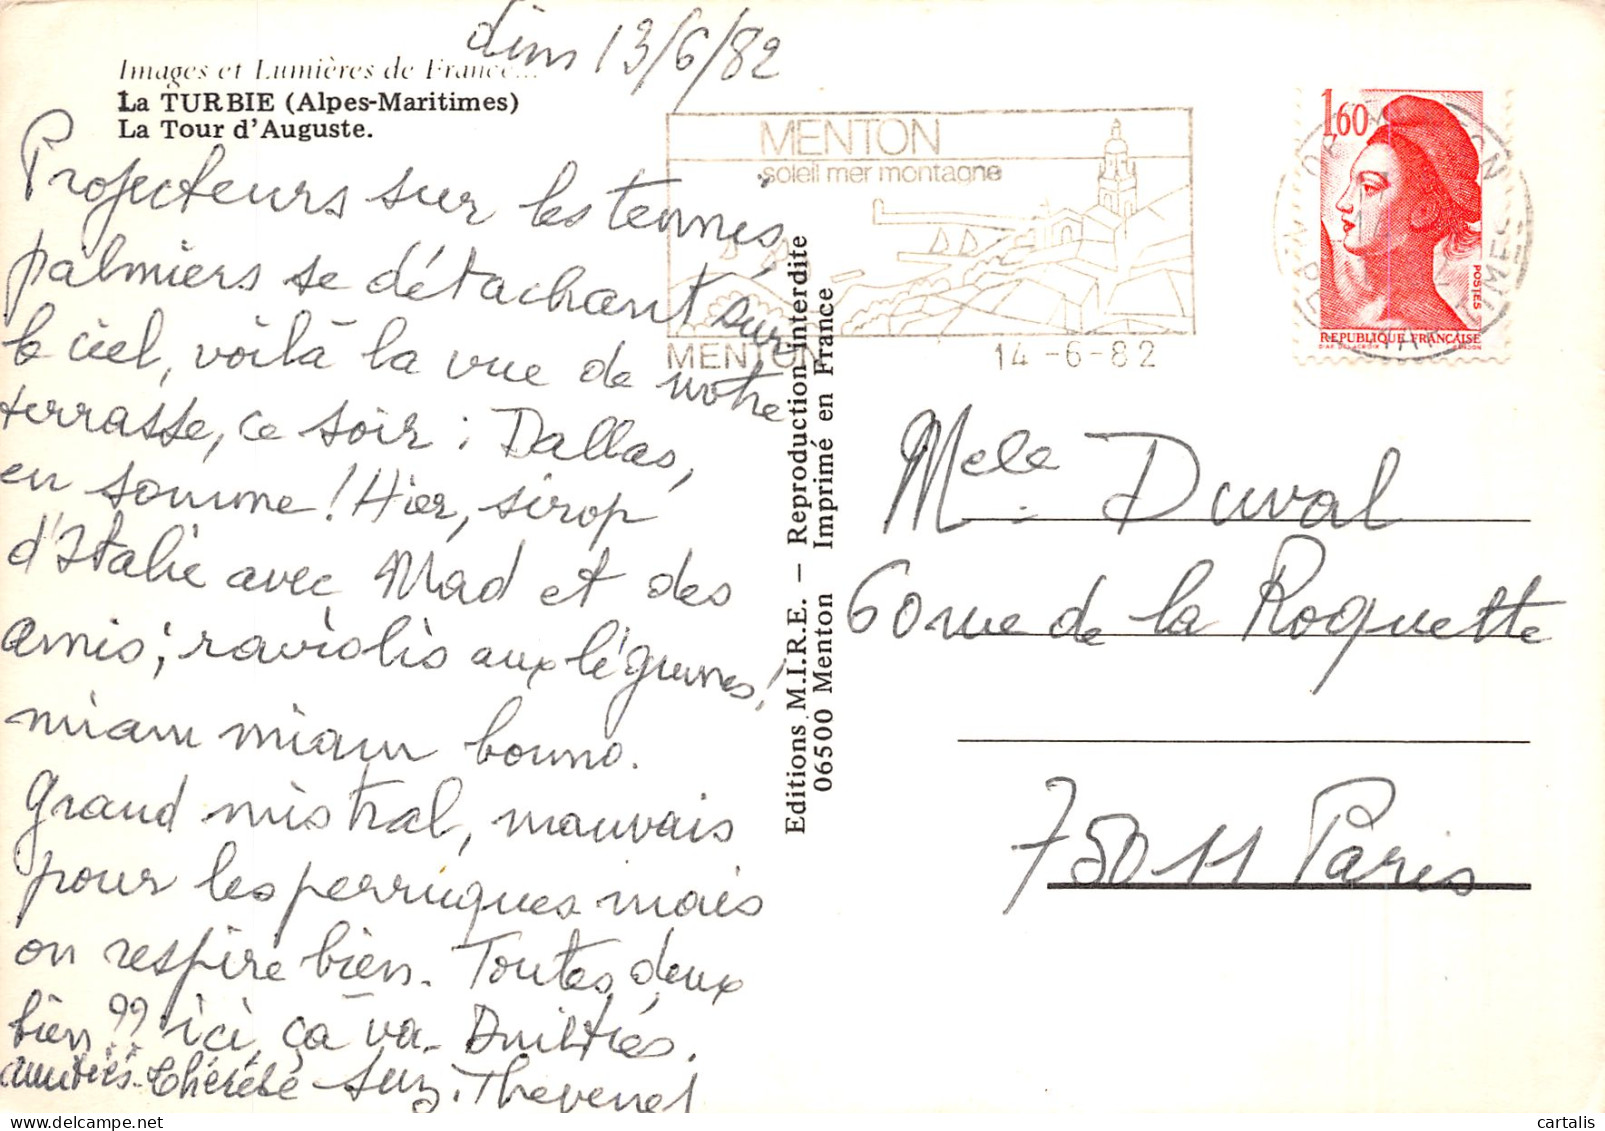 dim 13/6/82
Images et Lumières de France...
La TURBIE (Alpes-Maritimes)
La Tour d'Auguste.
Projecteurs sur les tennis,
palmiers se détachant sur
le ciel, voilà la vue de notre
terrasse, ce soir : Dallas,
en somme ! Hier, sirop
d'Italie avec Mad et des
amis ; raviolis aux légumes !
miam miam bouno.
Grand mistral, mauvais
pour les perruques mais
on respire bien. Toutes deux
bien ?? ici, ça va. Amitiés.
amitiés. Thérèse Suz. Thevenet
MENTON
soleil mer montagne
MENTON
14 -6-82
1,60
POSTES
REPUBLIQUE FRANÇAISE
D'AP. DELACROIX GANDON
Editions M.I.R.E. — Reproduction interdite
06500 Menton Imprimé en France
Melle Duval
60 rue de la Roquette
75011 Paris
cartalis